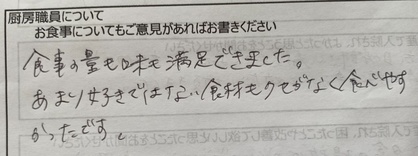 厨房職員について
お食事についてもご意見があればお書きください
食事の量も味も満足できました。
あまり好きではない食材もクセがなく食べやす
かったです。